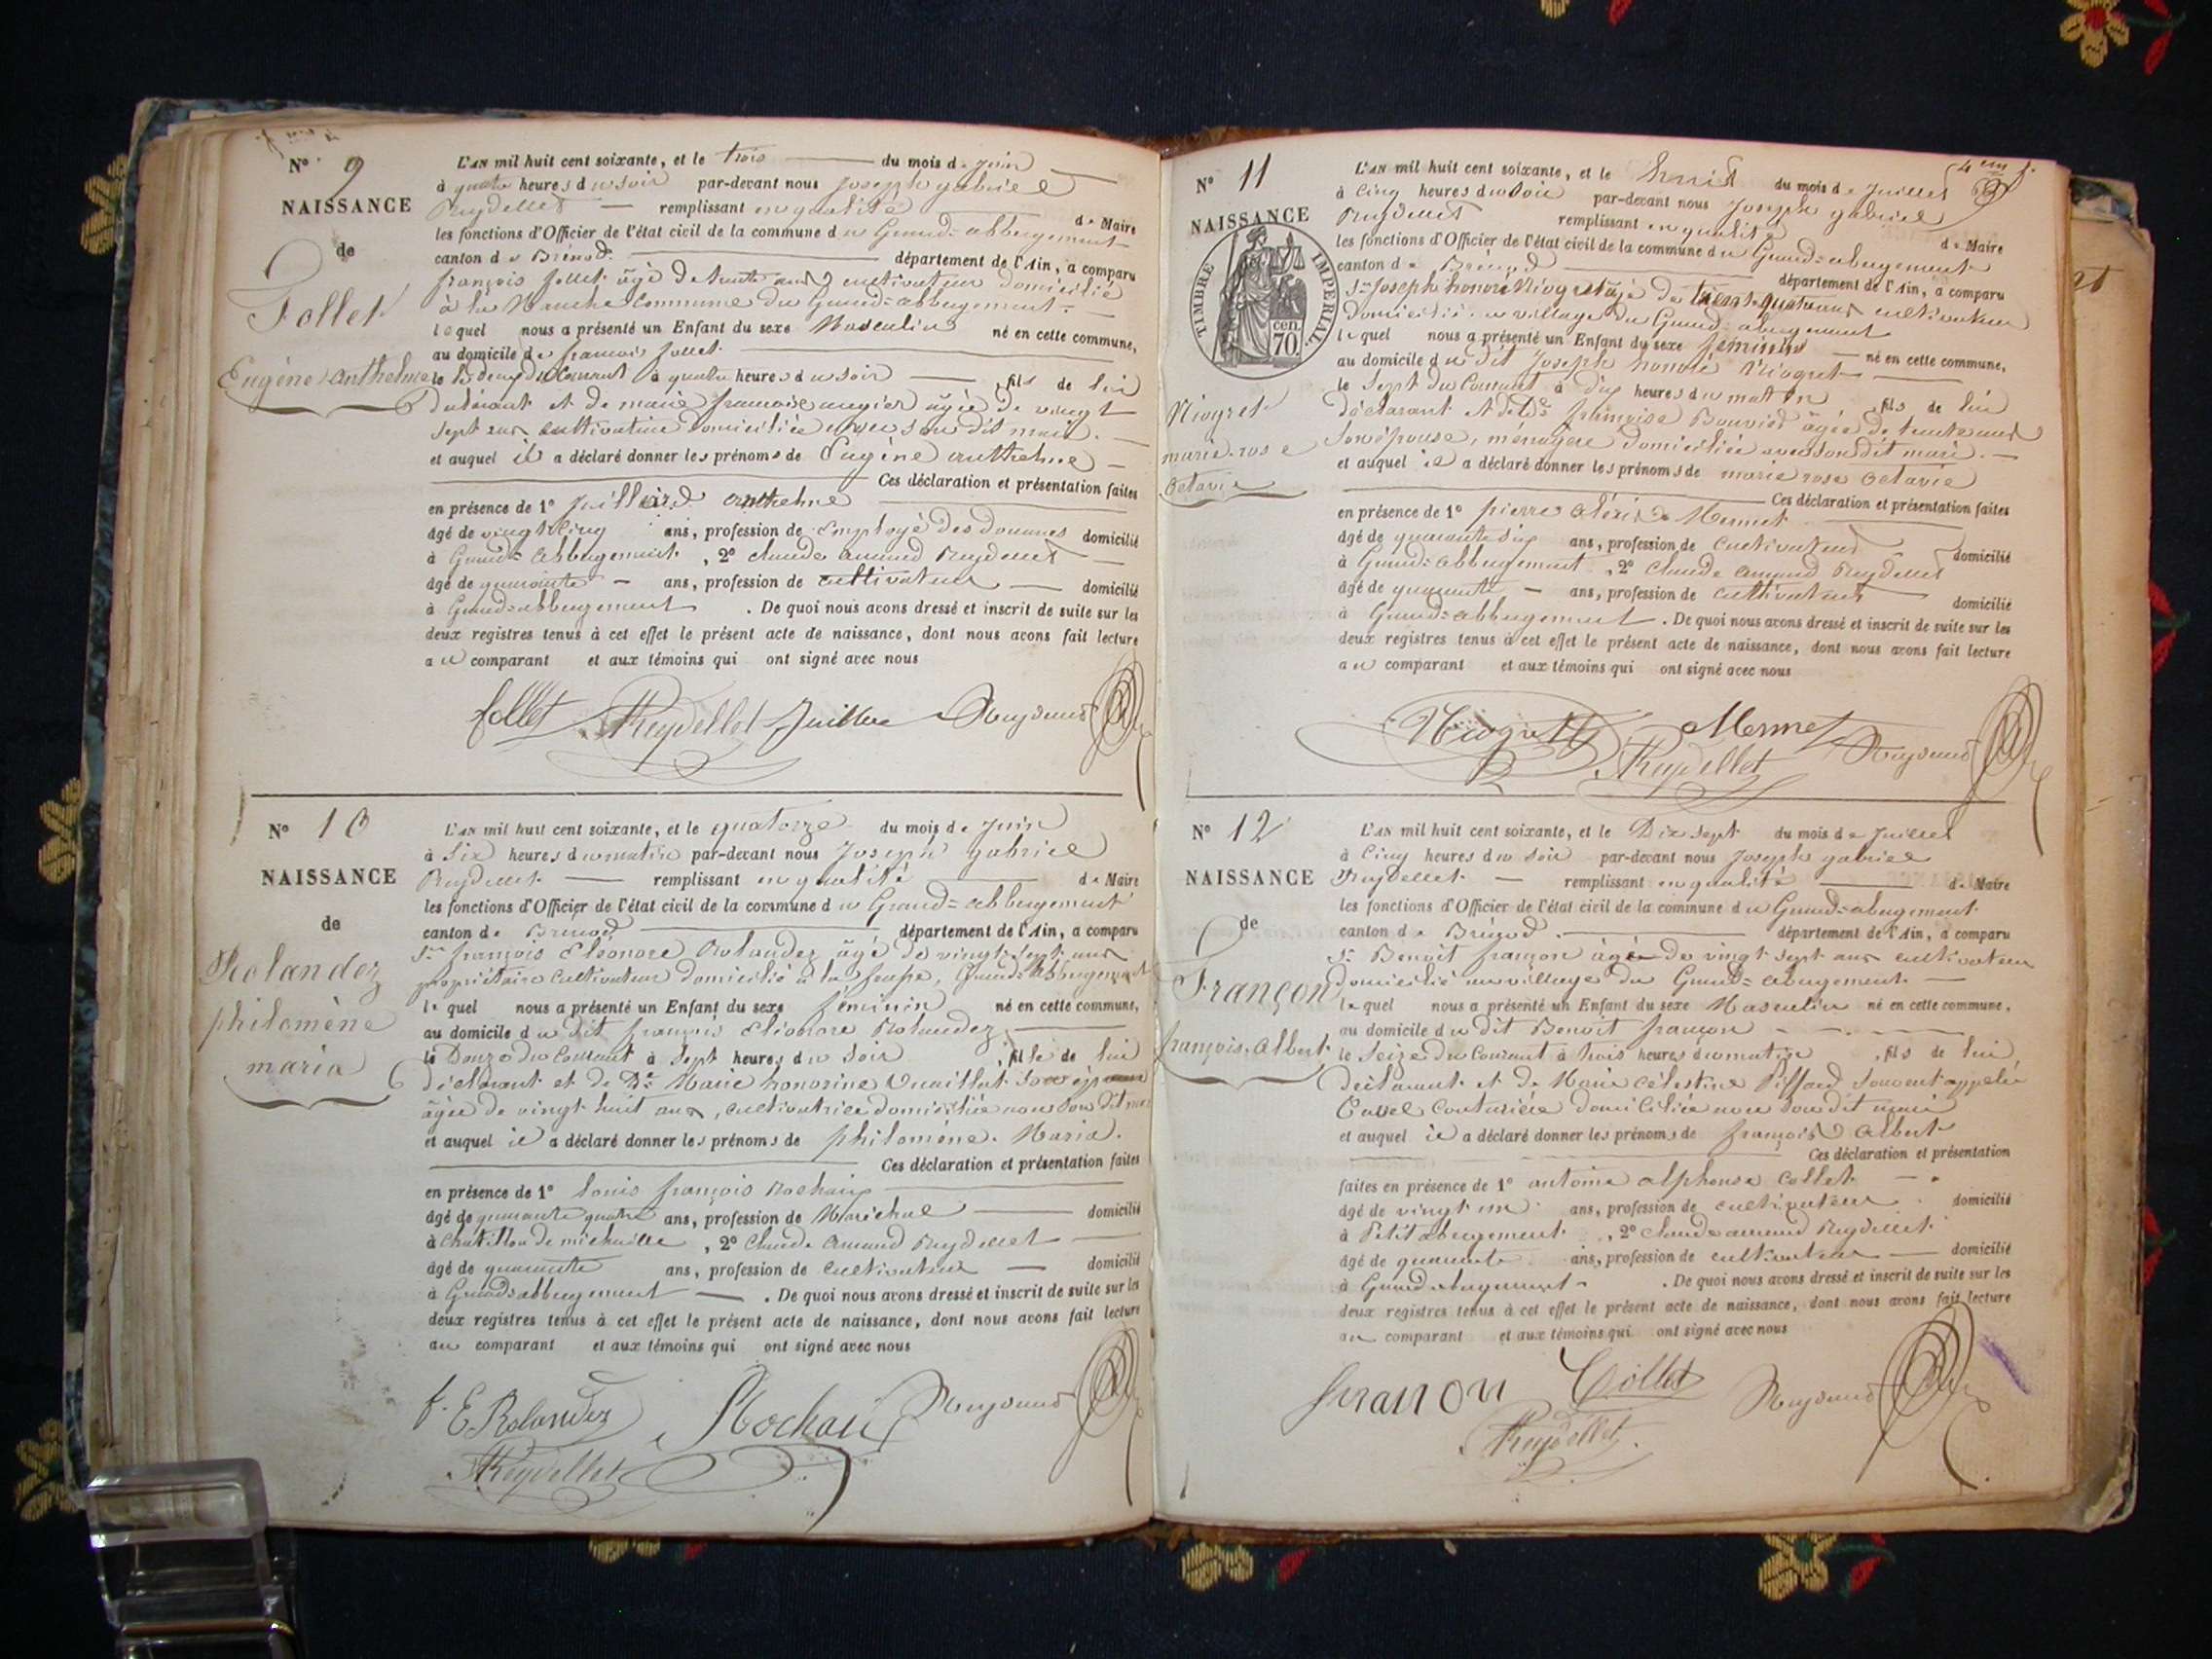 N° 9
NAISSANCE
de
Follet
Eugène Anthelme
L'AN mil huit cent soixante, et le trois du mois de Juin
à quatre heures du soir par-devant nous Joseph gabriel
Reydellet remplissant en qualité de Maire
les fonctions d'Officier de l'état civil de la commune du Grand=abbergement
canton de Brénod département de l'Ain, a comparu
françois follet âgé de trente ans cultivateur domicilié
à la Manche Commune du Grand=abbergement.
lequel nous a présenté un Enfant du sexe Masculin né en cette commune,
au domicile de francois follet
le deux du Courant à quatre heures du soir , fils de lui
déclarant et de marie francoise augier âgée de vingt
sept ans cultivatrice domiciliée avec son dit mari.
et auquel il a déclaré donner les prénoms de Eugène anthelme
Ces déclaration et présentation faites
en présence de 1° Juillard anthelme
âgé de vingt cinq ans, profession de Employé des douanes domicilié
à Grand=abbergement , 2° claude amand Reydellet
âgé de quarante ans, profession de cultivateur domicilié
à Grand=abbergement . De quoi nous avons dressé et inscrit de suite sur les
deux registres tenus à cet effet le présent acte de naissance, dont nous avons fait lecture
au comparant et aux témoins qui ont signé avec nous
follet Reydellet Juillard Reydellet
N° 10
NAISSANCE
de
Rolandez
philomène
maria
L'AN mil huit cent soixante, et le quatorze du mois de Juin
à Six heures du matin par-devant nous Joseph gabriel
Reydellet remplissant en qualité de Maire
les fonctions d'Officier de l'état civil de la commune du Grand=abbergement
canton de Brénod département de l'Ain, a comparu
Sr françois Eléonore Rolandez âgé de vingt-sept ans
propriétaire cultivateur domicilié à la , Grand=abbergement
lequel nous a présenté un Enfant du sexe féminin né en cette commune,
au domicile du dit françois Eléonore Rolandez
le Douze du Courant à Sept heures du Soir , fille de lui
déclarant et de De Marie honorine Vuaillat Son épouse
âgée de vingt huit ans, cultivatrice domiciliée avec Son dit mari
et auquel il a déclaré donner les prénoms de philomène. Maria.
Ces déclaration et présentation faites
en présence de 1° Louis françois Rochaix
âgé de quarante quatre ans, profession de Maréchal domicilié
à Chatillon de michaille , 2° Claude Amand Reydellet
âgé de quarante ans, profession de cultivateur domicilié
à Grand=abbergement . De quoi nous avons dressé et inscrit de suite sur les
deux registres tenus à cet effet le présent acte de naissance, dont nous avons fait lecture
au comparant et aux témoins qui ont signé avec nous
f. E. Rolandez Rochaix Reydellet
Reydellet
4em f.
N° 11
NAISSANCE
TIMBRE IMPERIAL
70 cen.
Niogret
marie-rose
octavie
L'AN mil huit cent soixante, et le huit du mois de Juillet
à Cinq heures du soir par-devant nous Joseph gabriel
Reydellet remplissant en qualité de Maire
les fonctions d'Officier de l'état civil de la commune du Grand=abergement
canton de Brénod département de l'Ain, a comparu
Sr Joseph honoré Niogret âgé de trent-quatre ans cultivateur
domicilié au village du Grand=abergement
lequel nous a présenté un Enfant du sexe féminin né en cette commune,
au domicile du dit Joseph honoré Niogret
le Sept du Courant à dix heures du matin , fils de lui
déclarant et de De françoise Bouvier âgée de trente ans
Son épouse, ménagère domiciliée avec Son dit mari.
et auquel il a déclaré donner les prénoms de marie rose octavie
Ces déclaration et présentation faites
en présence de 1° pierre alexis Mermet
âgé de quarante six ans, profession de Cultivateur domicilié
à Grand=abbergement , 2° Claude amand Reydellet
âgé de quarante ans, profession de cultivateur domicilié
à Grand=abbergement . De quoi nous avons dressé et inscrit de suite sur les
deux registres tenus à cet effet le présent acte de naissance, dont nous avons fait lecture
au comparant et aux témoins qui ont signé avec nous
Niogret Mermet Reydellet
Reydellet
N° 12
NAISSANCE
de
Françon
françois-Albert
L'AN mil huit cent soixante, et le Dix sept du mois de Juillet
à Cinq heures du Soir par-devant nous Joseph gabriel
Reydellet remplissant en qualité de Maire
les fonctions d'Officier de l'état civil de la commune du Grand=abergement
canton de Brénod. département de l'Ain, a comparu
Sr Benoit françon âgé de vingt sept ans cultivateur
domicilié au village du Grand=abergement
lequel nous a présenté un Enfant du sexe Masculin né en cette commune,
au domicile du dit Benoit françon
le Seize du Courant à trois heures du matin , fils de lui
déclarant et de Marie Célestine Piffard Souvent appelée
couturière domiciliée avec Son dit mari
et auquel il a déclaré donner les prénoms de françois Albert
Ces déclaration et présentation
faites en présence de 1° antoine alphonse Collet
âgé de vingt un ans, profession de cultivateur domicilié
à Petit abergement , 2° claude amand Reydellet
âgé de quarante ans, profession de cultivateur domicilié
à Grand abergement . De quoi nous avons dressé et inscrit de suite sur les
deux registres tenus à cet effet le présent acte de naissance, dont nous avons fait lecture
au comparant et aux témoins qui ont signé avec nous
franson Collet Reydellet
Reydellet